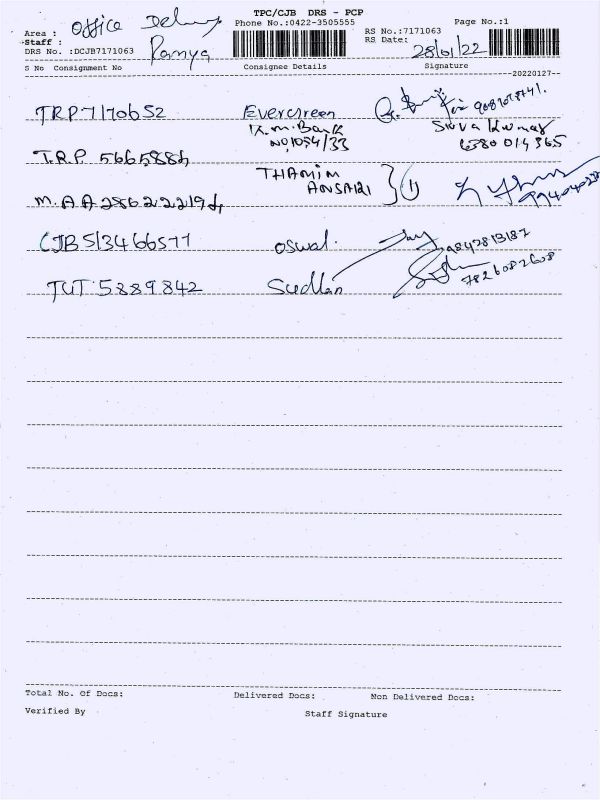 TPC/CJB DRS - PCP
Phone No.:0422-3505555
Page No.:1
Area : Office Delivery
Staff : Ramya
DRS No. :DCJB7171063
RS No.:7171063
RS Date: 28/01/22
S No Consignment No Consignee Details Signature
--20220127--
TRP7170652 Evergreen
K.M. Bank Siva Kumar
NO1054/33 6380014365
T.R.P 5665886 THAMIM
ANSARI } (1)
M.AA286222194
CJB513466577 Oswal. 9842813187
TUT 5889842 Sudhan 7826082608
Total No. Of Docs: Delivered Docs: Non Delivered Docs:
Verified By Staff Signature